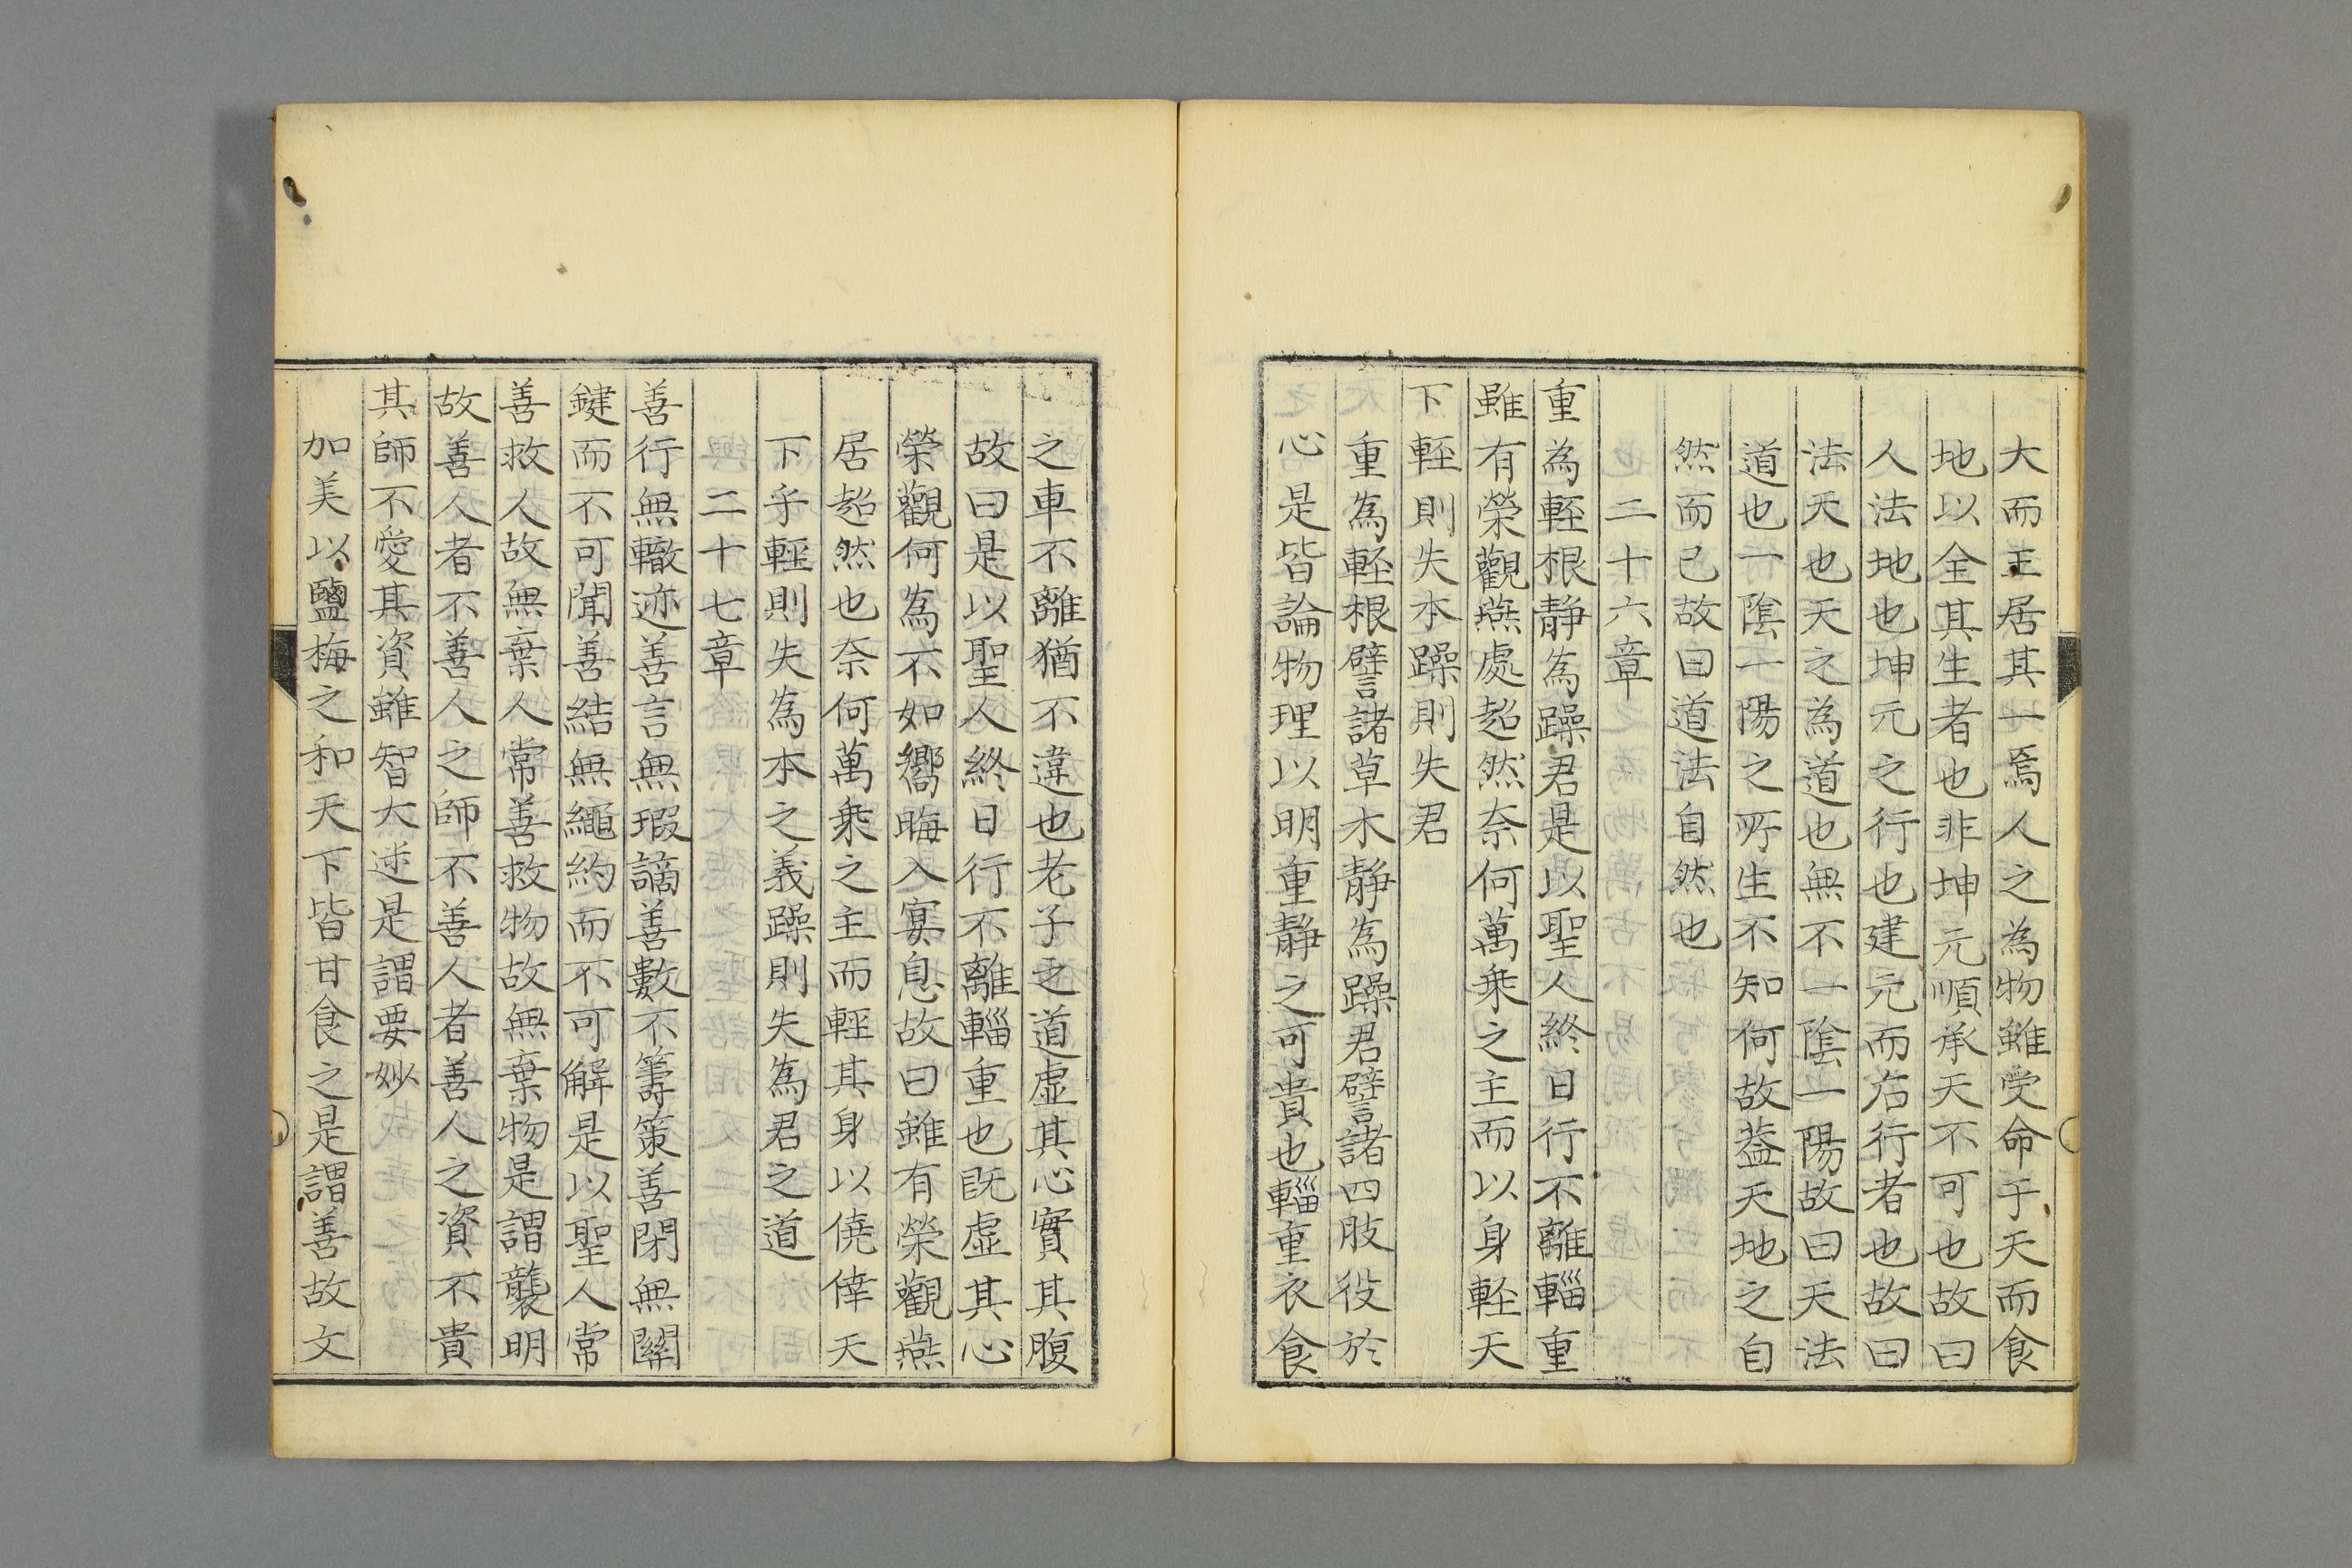 大而王居其一焉人之為物雖受命于天而食
地以全其生者也非坤元順承天不可也故曰
人法地也坤元之行也建元而右行者也故曰
法天也天之為道也無不一陰一陽故曰天法
道也一陰一陽之所生不知何故葢天地之自
然而已故曰道法自然也
二十六章
重為輕根静為躁君是以聖人終日行不離輜重
雖有榮觀燕處超然奈何萬乗之主而以身輕天
下輕則失本躁則失君
重為輕根譬諸草木静為躁君譬諸四肢役於
心是皆論物理以明重静之可貴也輜重衣食
之車不離猶不違也老子之道虛其心實其腹
故曰是以聖人終日行不離輜重也既虛其心
榮觀何為不如嚮晦入宴息故曰雖有榮觀燕
居超然也奈何萬乗之主而輕其身以僥倖天
下乎輕則失為本之義躁則失為君之道
二十七章
善行無轍迹善言無瑕謫善數不籌策善閉無關
鍵而不可開善結無繩約而不可解是以聖人常
善救人故無棄人常善救物故無棄物是謂襲明
故善人者不善人之師不善人者善人之資不貴
其師不愛其資雖智大迷是謂要妙
加美以鹽梅之和天下皆甘食之是謂善故文